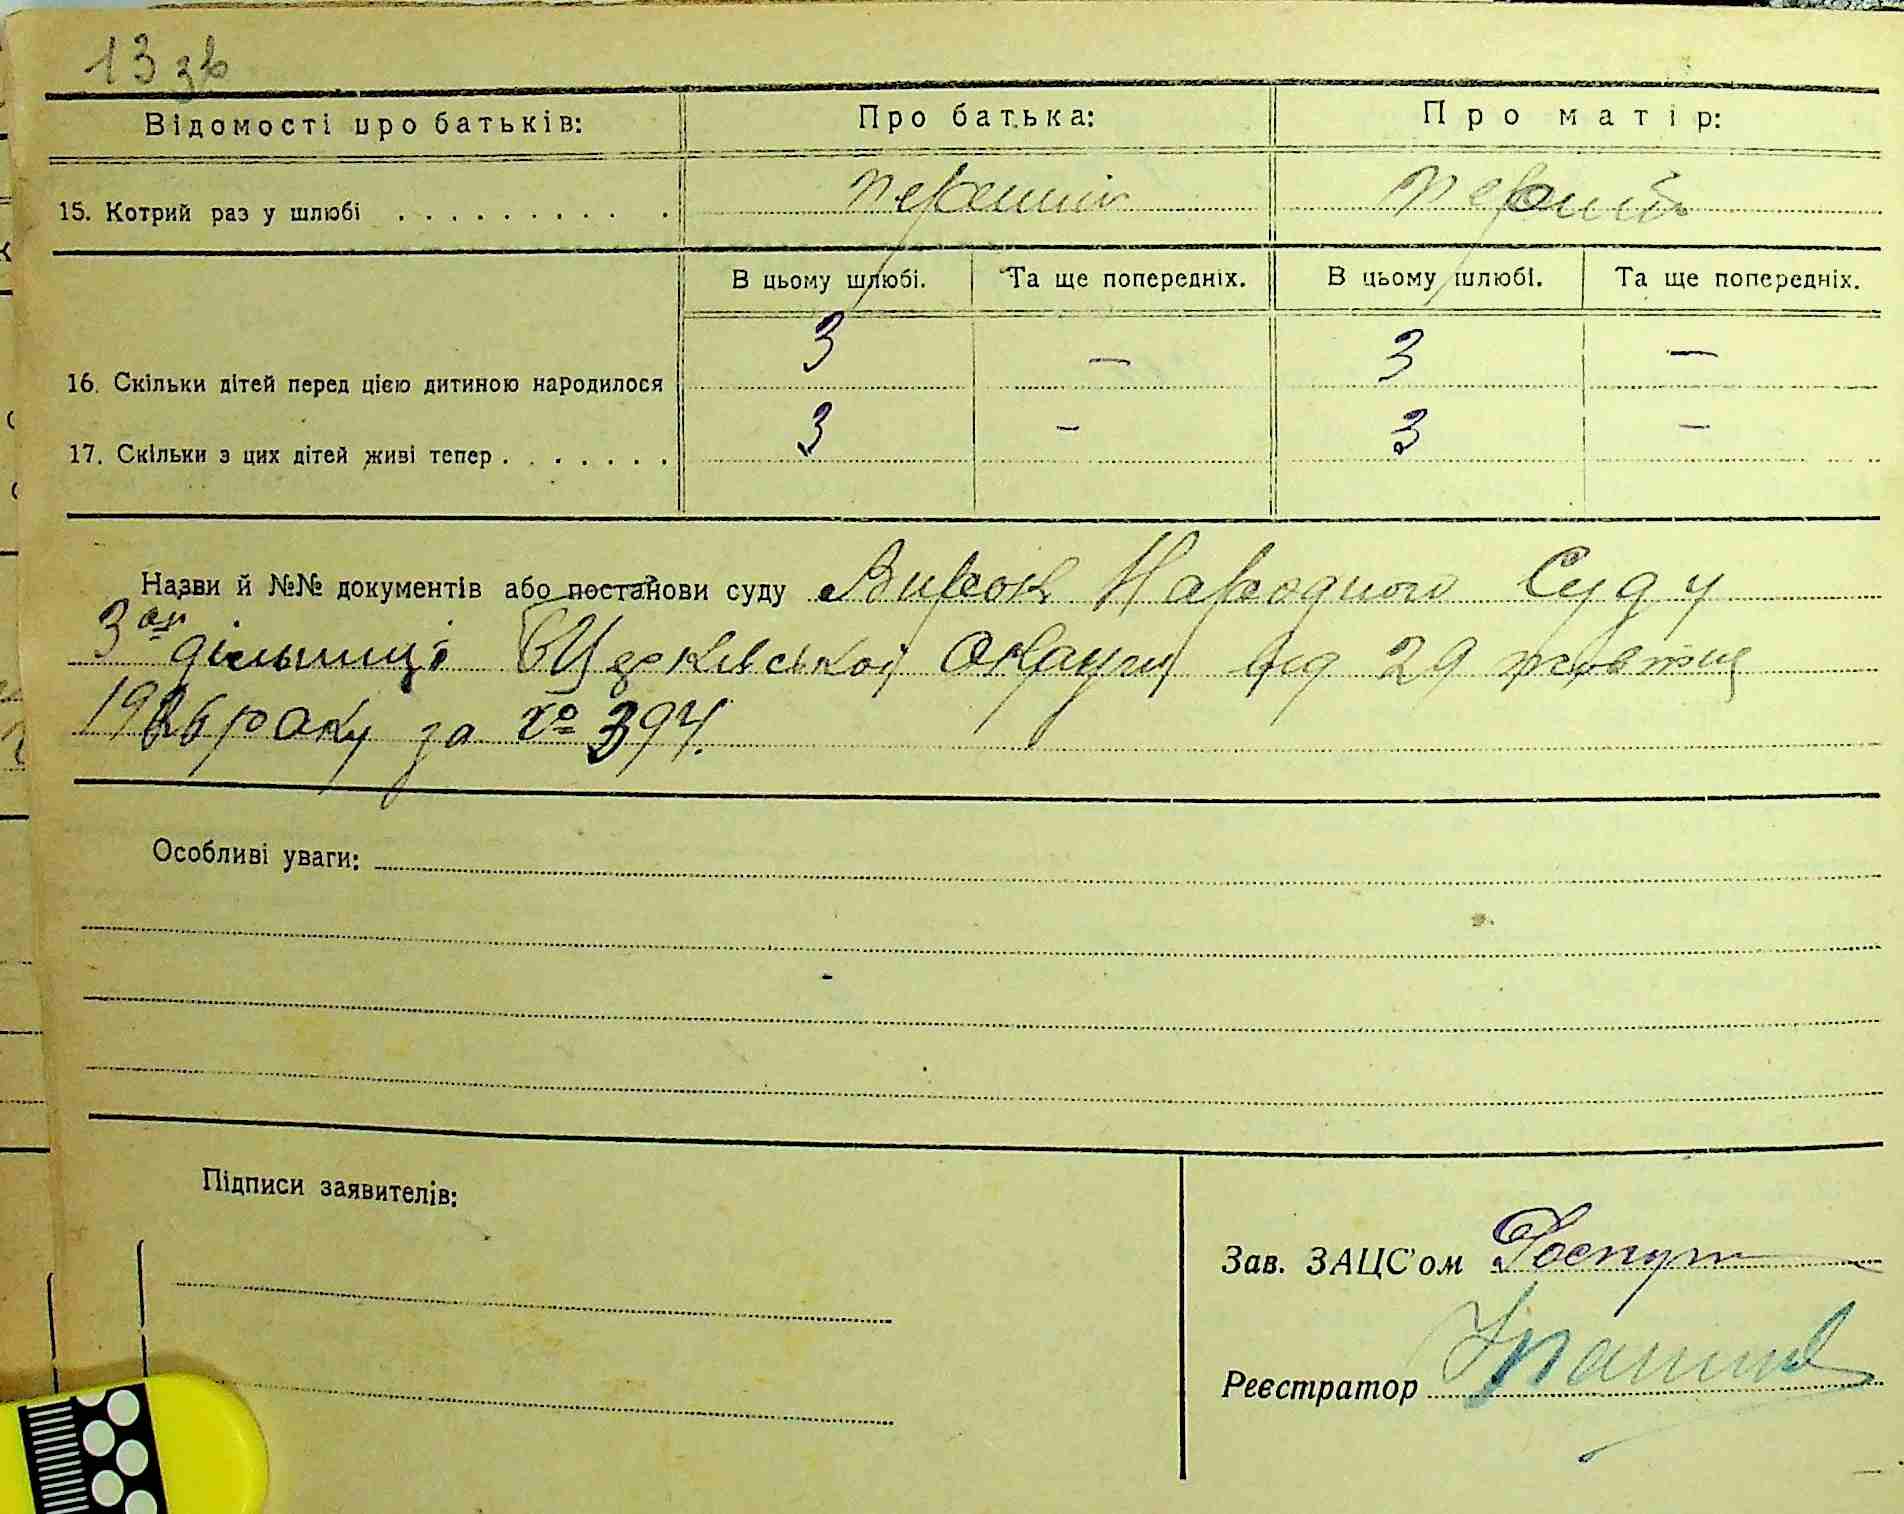 13 зв
Відомості про батьків: Про батька: Про матір:
15. Котрий раз у шлюбі . . . . . . . . . . перший перший
В цьому шлюбі. Та ще попередніх. В цьому шлюбі. Та ще попередніх.
16. Скільки дітей перед цією дитиною народилося 3 — 3 —
17. Скільки з цих дітей живі тепер . . . . . . . 3 — 3 —
Назви й №№ документів або постанови суду Вирок Народного Суду
3ої дільниці БЦерківської Округи від 29 жовтня
1926 року за № 394.
Особливі уваги:
Підписи заявителів:
Зав. ЗАЦС'ом
Реєстратор